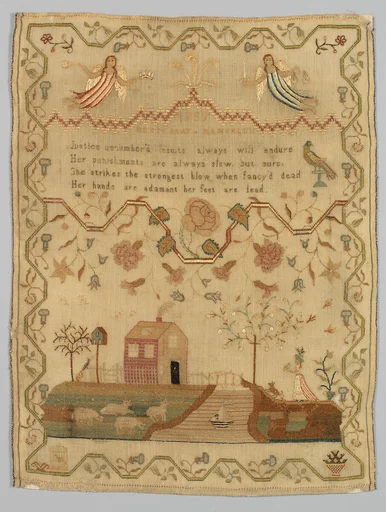 Justice remember'd results always will endure
Her punishments are always slow, but sure.
She strikes the strongest blow when fancy'd dead
Her hands are adamant her feet are lead.